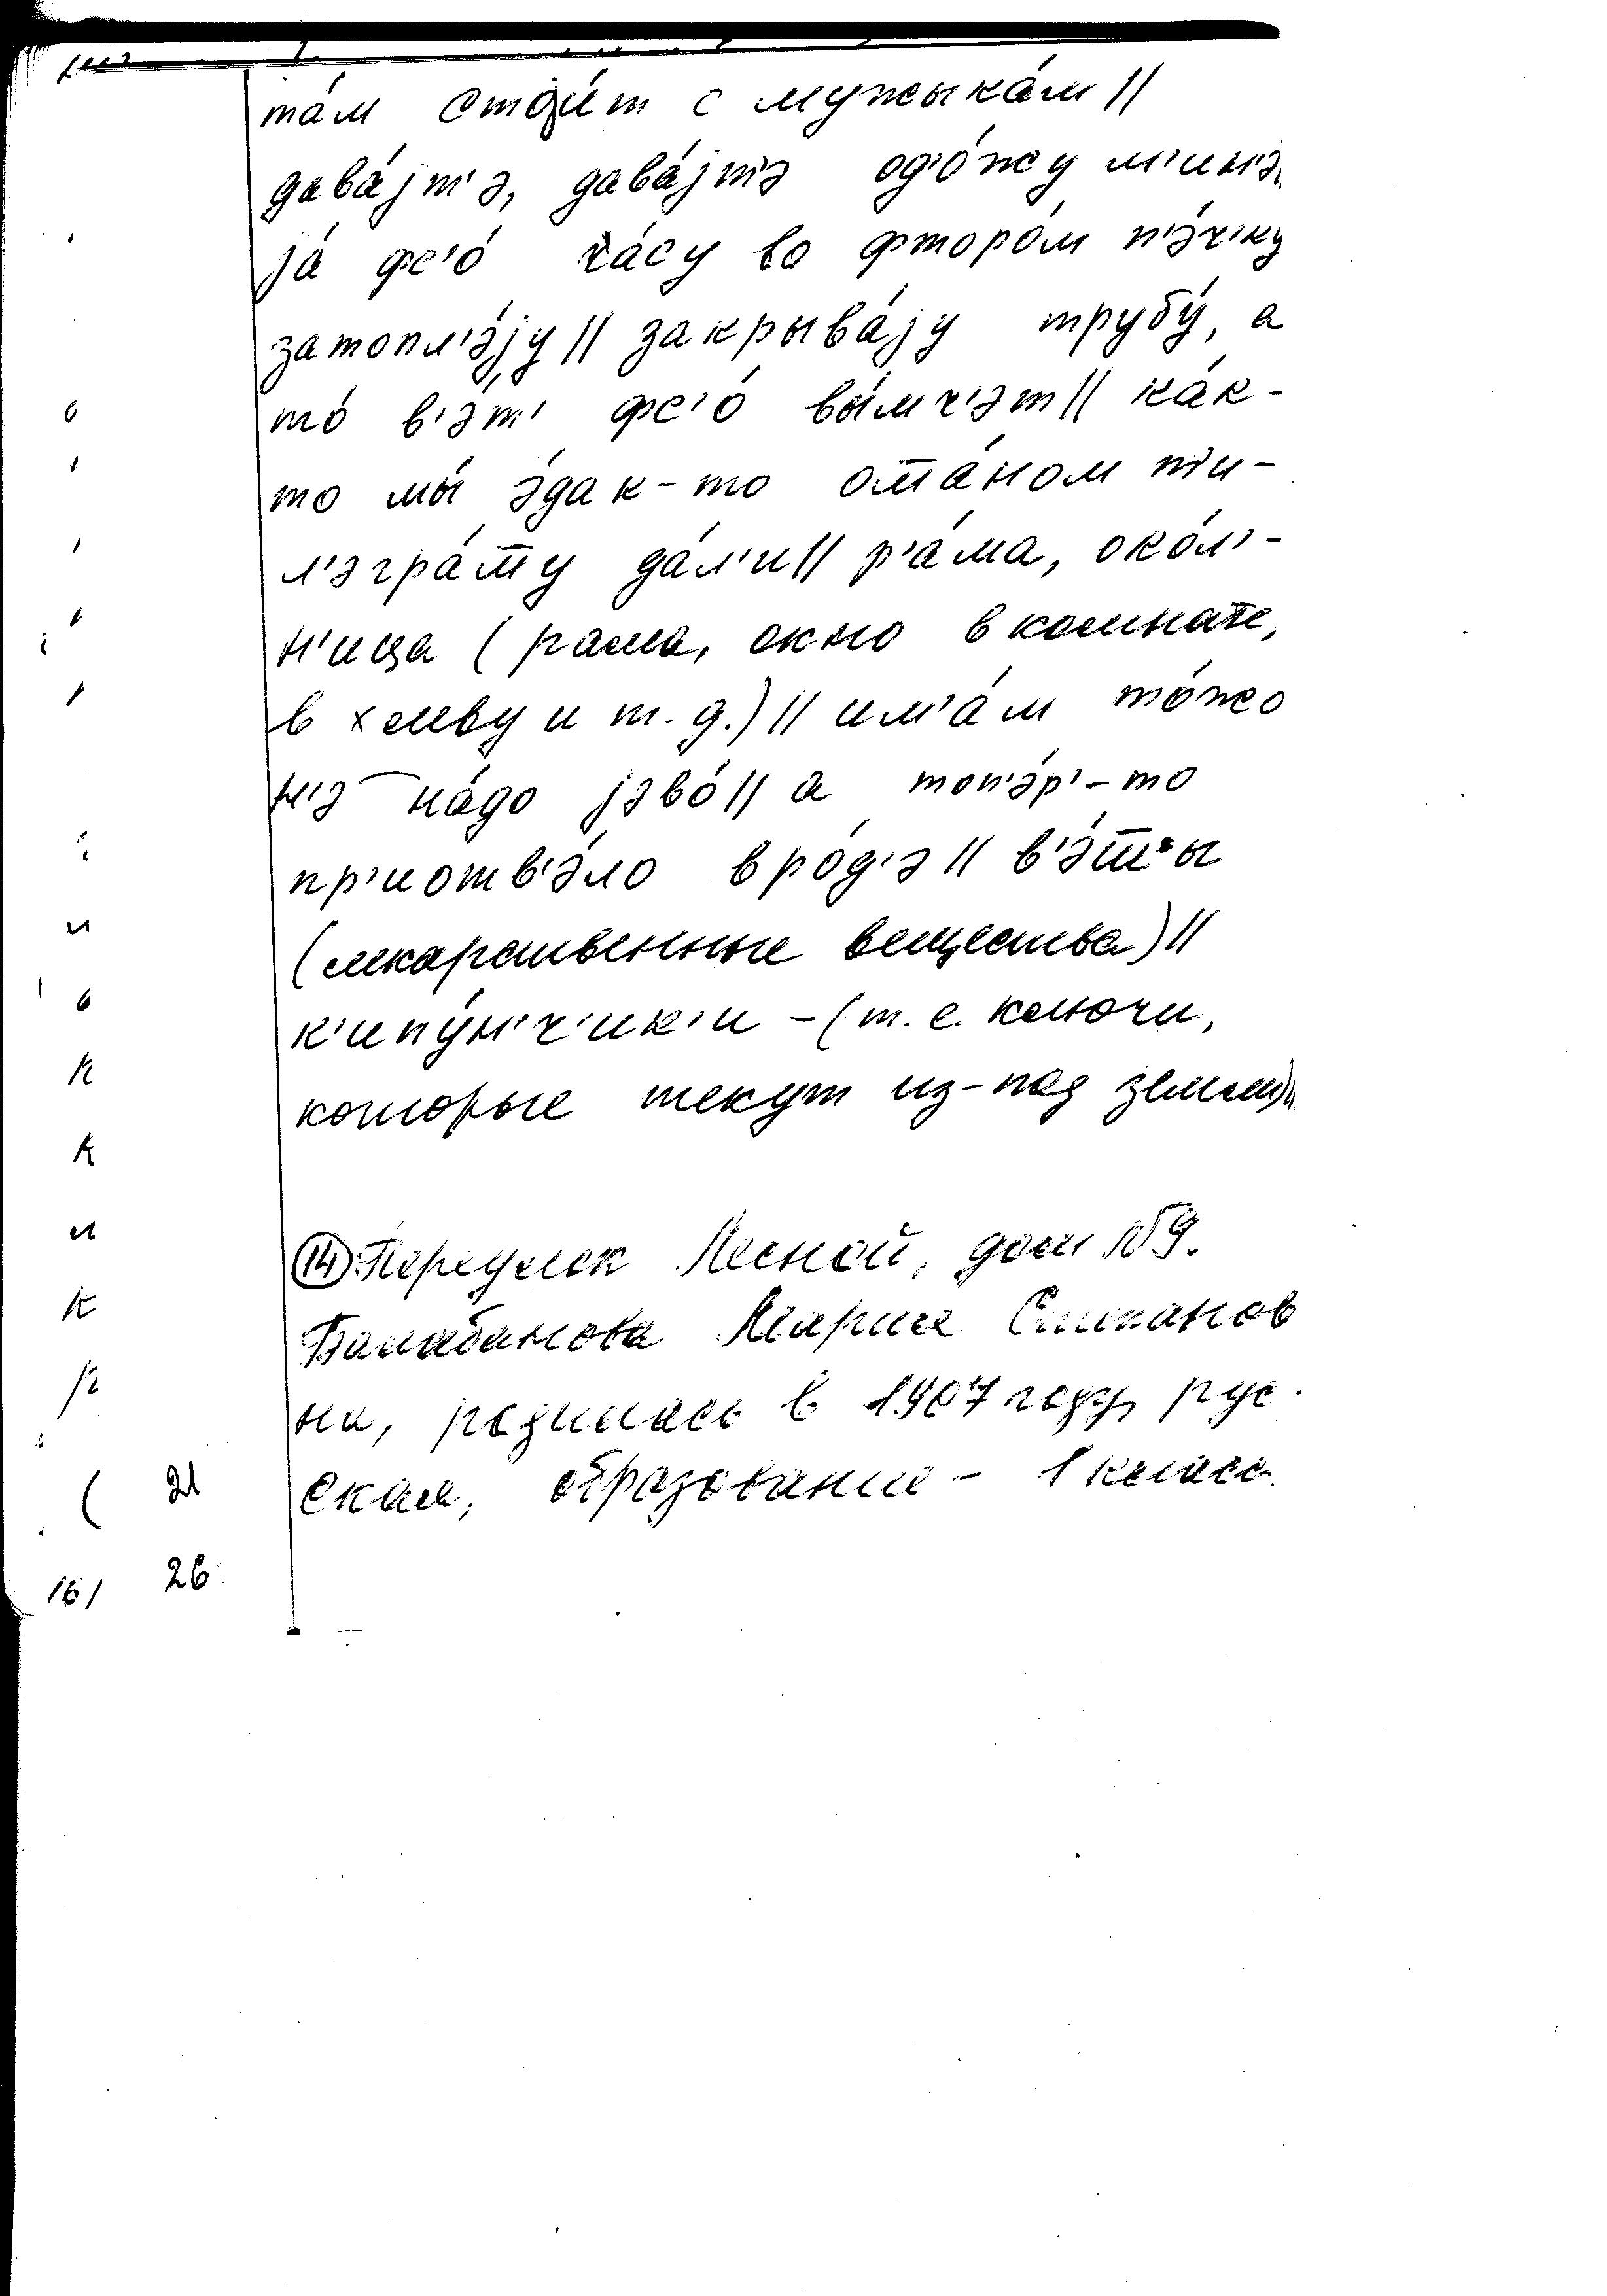 та́м стоjи́т с мужыка́м //
дава́jт'э, дава́jт'э од'о́жу м'ин'э
jа́ фс'о́ ч́асу во фторо́м п'э́ч'ку
затопл'э́jу // закрыва́jу трубу́, а
то́ в'э́т' фс'о́ вы́мч'эт // ка́к-
то мы́ э́дак-то ома́ном т'и-
л'эгра́му да́л'и // р'а́ма, око́л'-
н'ица (рама, окно в комнате,
в хлеву и т. д.) // им'а́м то́жо
н'э на́до jэво́ // а топ'э́р'-то
пр'иотв'э́ло в ро́д'э // в'э́шшы
(лекарственные вещества) //
к'ипу́н'ч'ик'и - (т. е. ключи,
которые текут из-под земли) //
(14) Переулок Лесной, дом № 9.
Балабанова Мария Степанов
на, родилась в 1907 году, рус
ская, образование - 1 класс.
21
26